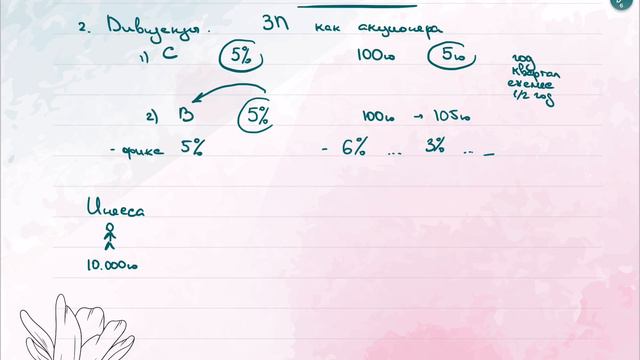 2. Дивиденды. ЗП как акционера
1) С 5% 100ю 5ю год
квартал
ежемес
1/2 год
2) В 5% 100ю → 105ю
- фикс 5% - 6% ... 3% ... –
Инесса
10.000ю